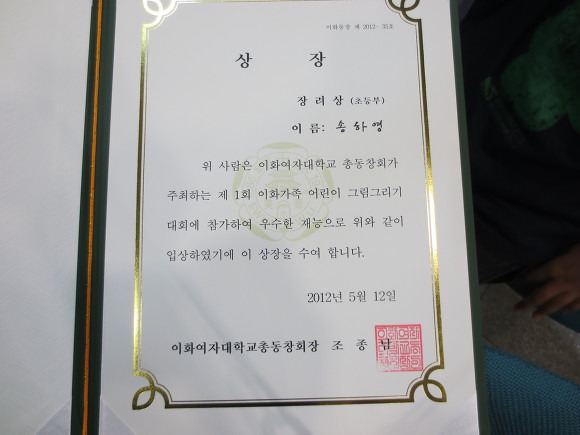 이화동창 제 2012- 35호
상 장
장려상 (초등부)
이름: 송하영
위 사람은 이화여자대학교 총동창회가
주최하는 제 1회 이화가족 어린이 그림그리기
대회에 참가하여 우수한 재능으로 위와 같이
입상하였기에 이 상장을 수여 합니다.
2012년 5월 12일
이화여자대학교총동창회장 조 종 남